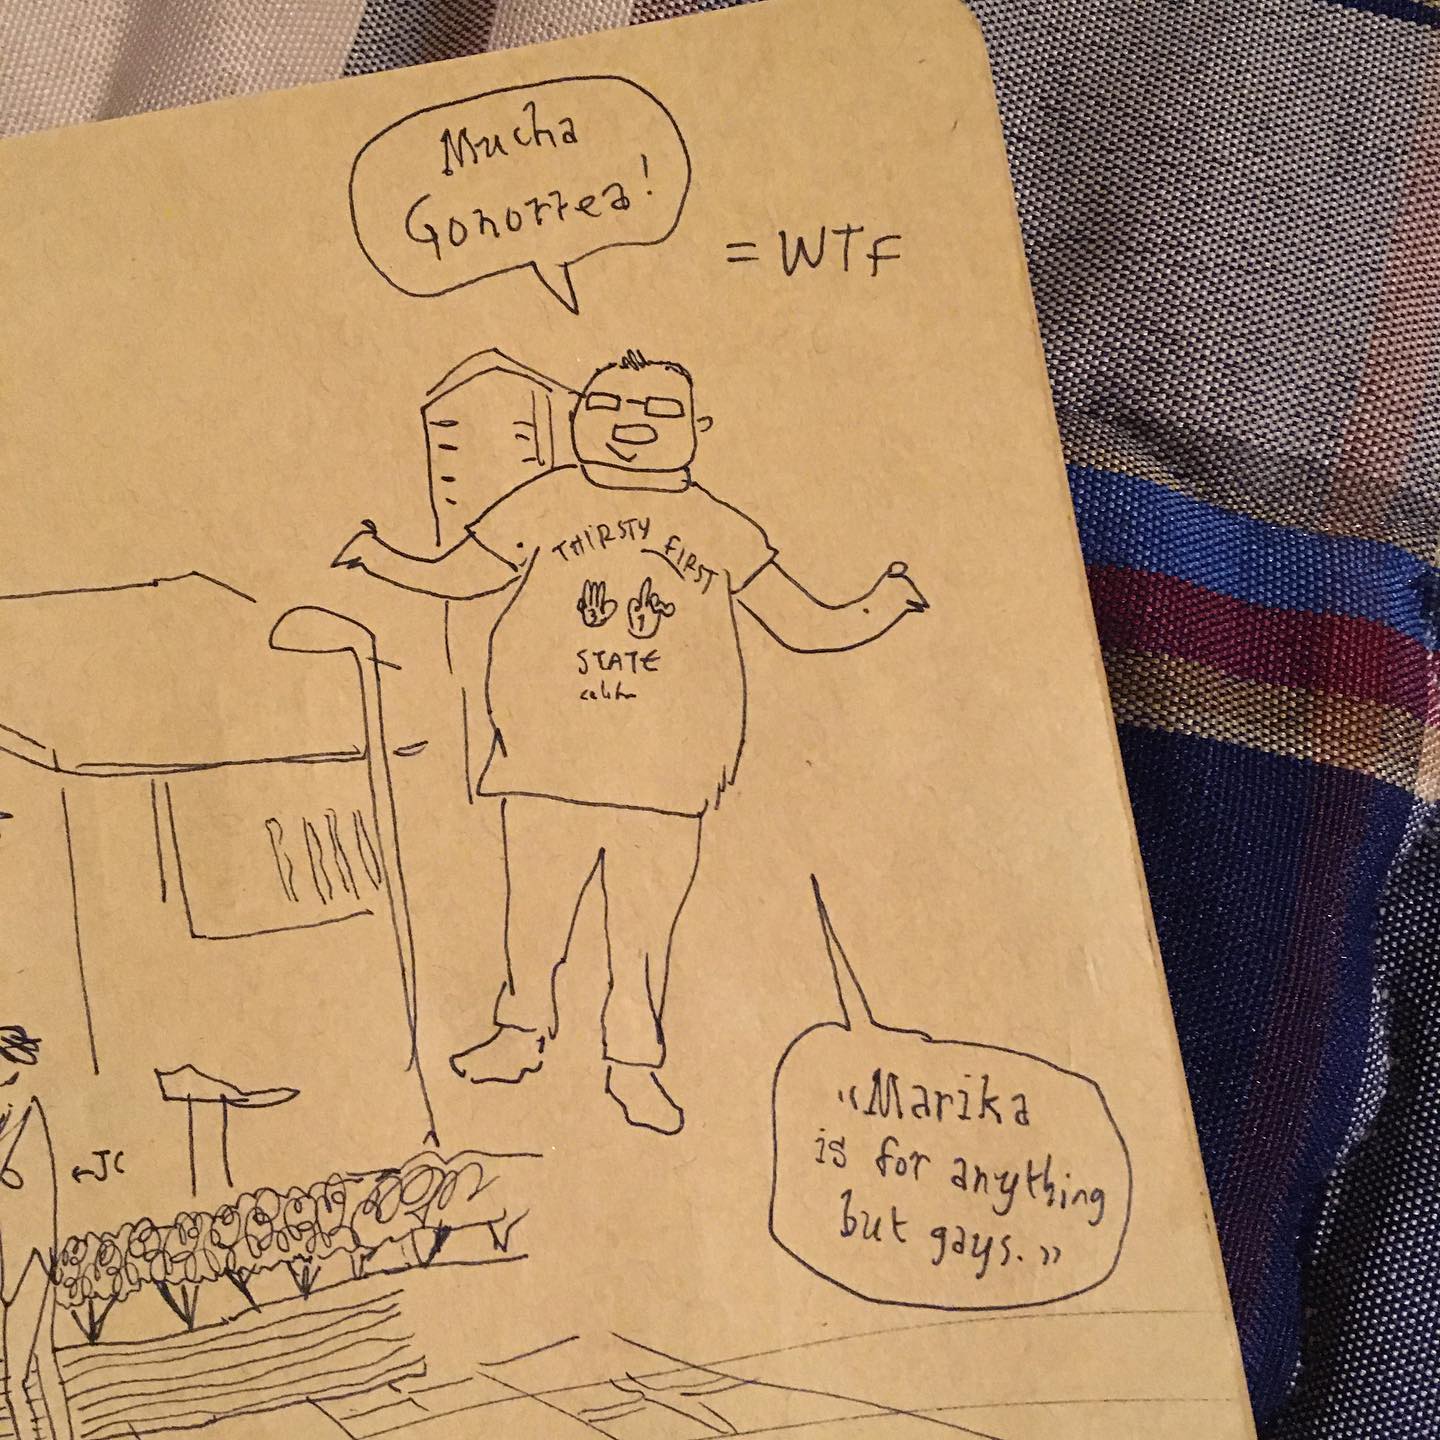 Mucha
Gonorrea!
= WTF
THIRSTY FIRST
3 1
STATE
←JC
"Marika
is for anything
but gays."